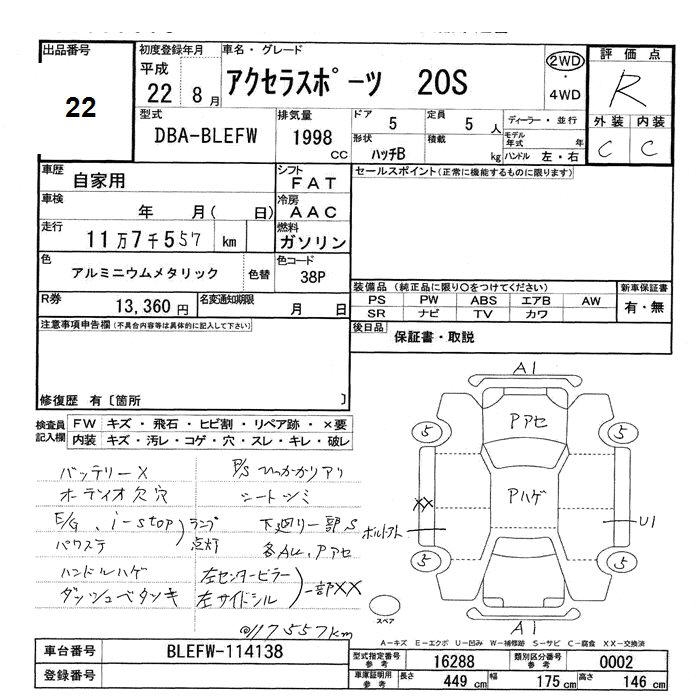 出品番号 初度登録年月 車名・グレード 評価点
22 平成 22 8月 アクセラスポーツ 20S 2WD・4WD R
型式 排気量 ドア 5 定員 5人 ディーラー・並行 外装 内装
DBA-BLEFW 1998CC 形状 ハッチB 積載 kg モデル年式 年 ハンドル 左・右 C C
車歴 自家用 シフト FAT セールスポイント(正常に機能するものに限ります)
車検 年 月( 日) 冷房 AAC
走行 11万7千557 km 燃料 ガソリン
色 アルミニウムメタリック 色替 色コード 38P
装備品 (純正品に限り○をつけてください) 新車保証書
PS PW ABS エアB AW 有・無
SR ナビ TV カワ
R券 13,360円 名変通知期限 月 日
後日品 保証書・取説
注意事項申告欄(不具合内容等は具体的に記入して下さい)
修復歴 有〔箇所 〕
検査員記入欄 FW キズ・飛石・ヒビ割・リペア跡・×要
内装 キズ・汚レ・コゲ・穴・スレ・キレ・破レ
バッテリーX P/S ひっかかりアリ
オーディオ欠穴 シートシミ
E/G、i-stop ランプ点灯 下廻り一部S
パワステ 各AU、Pアセ
ハンドルハゲ 左センターピラー 一部XX
ダッシュベタツキ 左サイドシル
@117557km
A1
Pアセ
5 5
Pハゲ
XX
ボルト U1
5 5
スペア
A1
A-キズ E-エクボ U-凹み W-補修跡 S-サビ C-腐食 XX-交換済
車台番号 BLEFW-114138
登録番号
型式指定番号 参考 16288 類別区分番号 参考 0002
車庫証明用 参考 長さ 449cm 幅 175cm 高さ 146cm